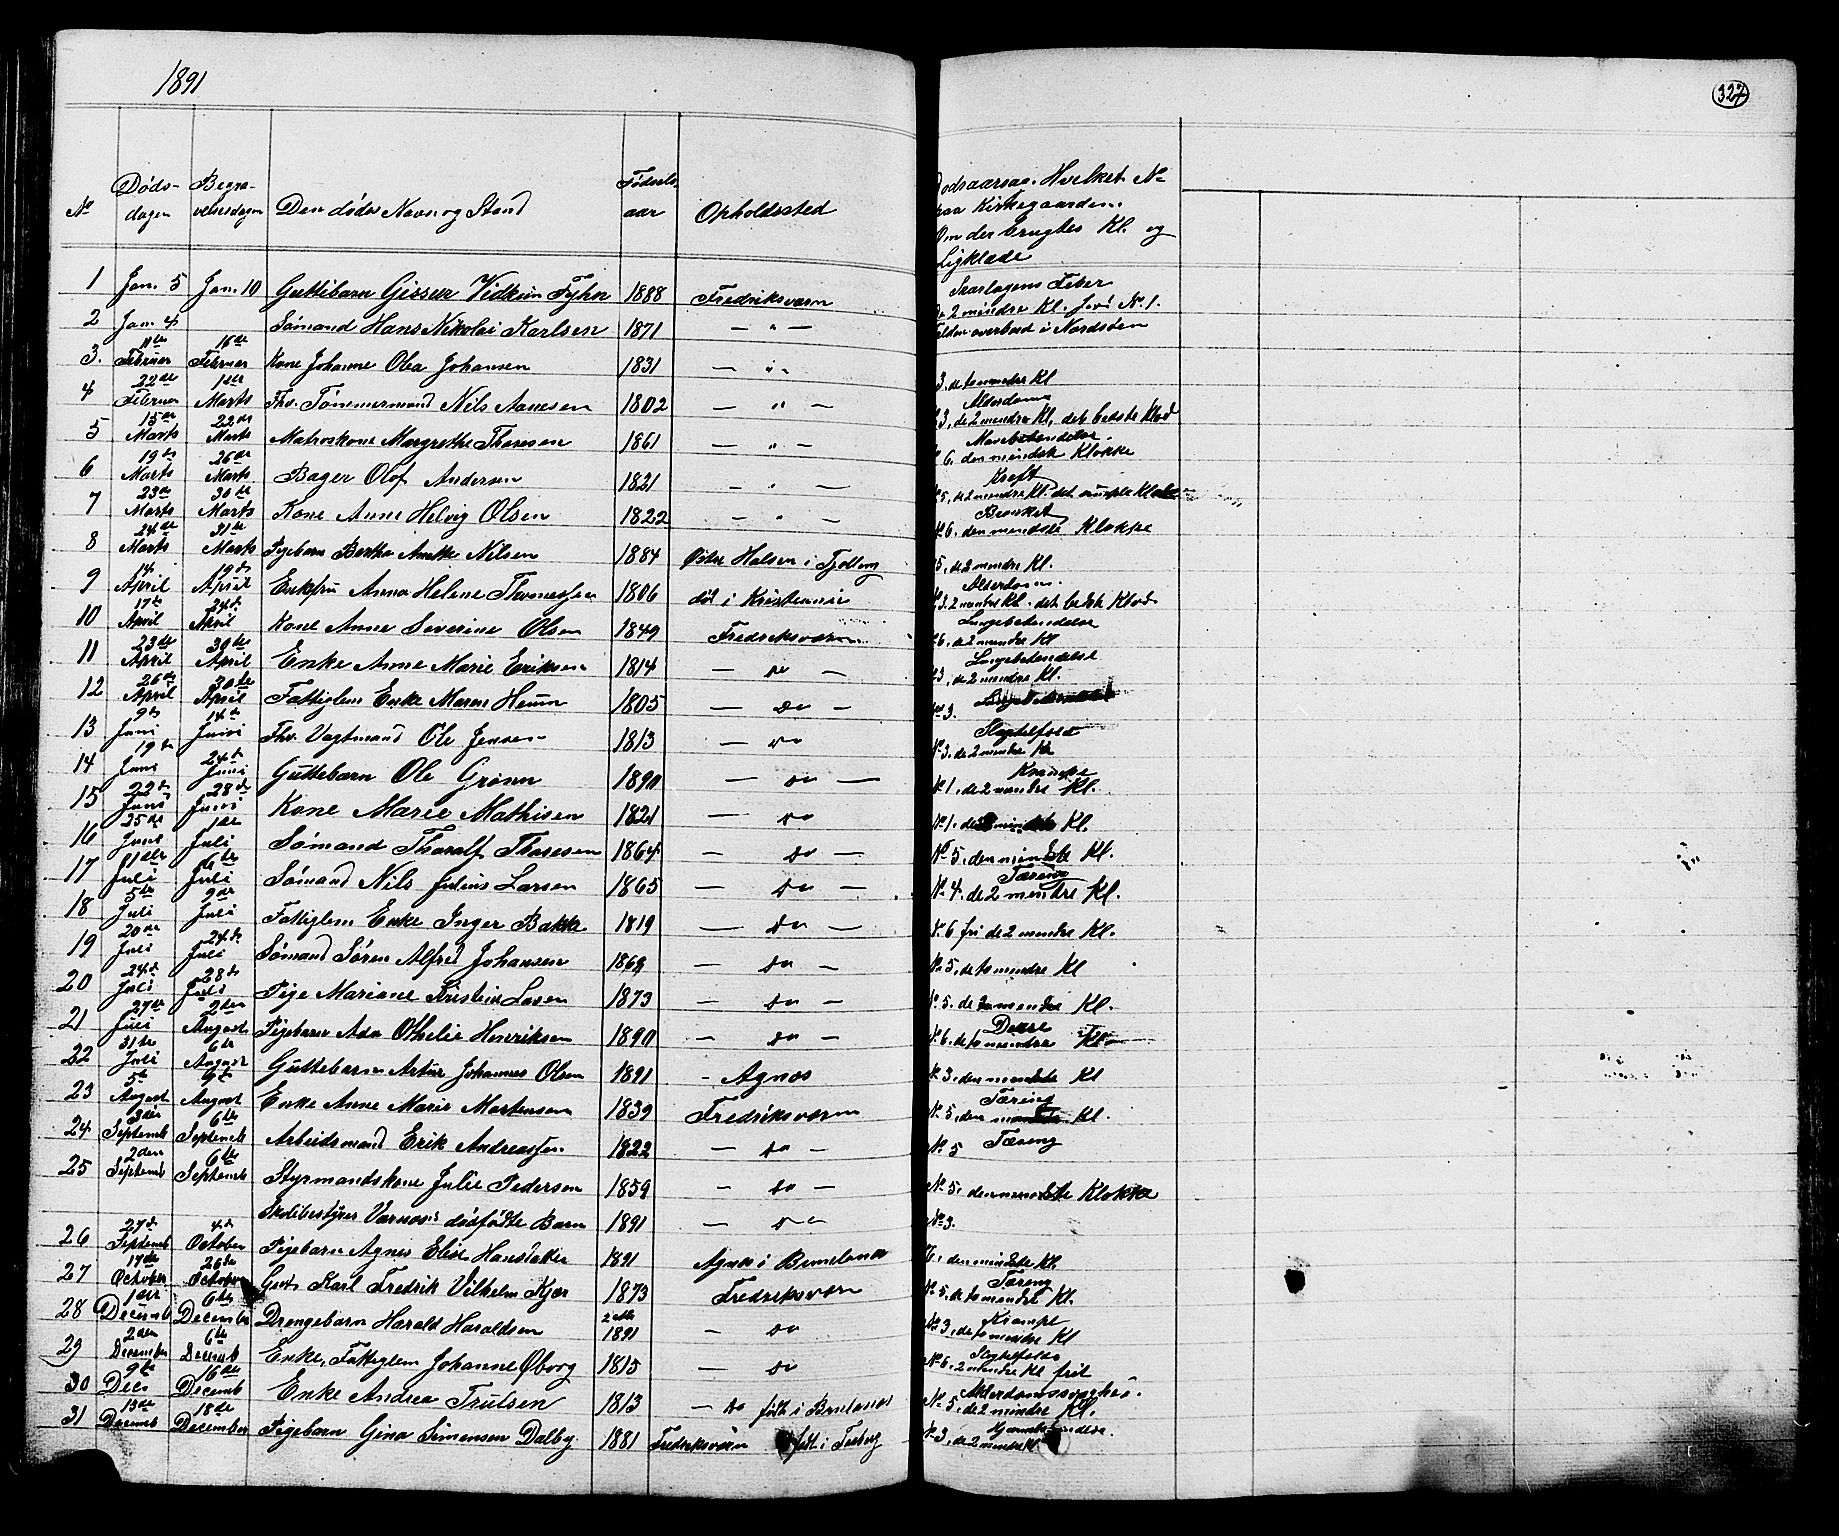 1891
327
No Døds-dagen Begra-velsesdagen Den dødes Navn og Stand Fødsels-aar Opholdssted Dødsaarsag. Hvilket No paa Kirkegaarden. Om der brugtes Kl. og Ligklæde
1 Jan. 5 Jan. 10 Guttebarn Gisseur Vidkun Fyhn 1888 Fredriksværn Skarlagens Feber De 2 mindre Kl. Jord No. 1.
2 Jan. 4 Sømand Hans Nikolai Karlsen 1871 — " — Falden overbord i Nordsøen
3. 11te Februar 16de Februar Kone Johanne Olea Johansen 1831 — " 3. de to mindre Kl
4 22de Februar 1ste Marts Fhv. Tømmermand Nils Aanesen 1802 — " — Alderdom 3, de 2 mindre Kl, det bedste Klæd
5 15de Marts 22de Marts Matroskone Margrethe Thoresen 1861 — " — Mavebetændelse. 6. den mindste Klokke
6 19de Marts 26de Marts Bager Olof Andersen 1821 — " — Kræft 5, de 2 mindre Kl. det simple Klæde
7 23de Marts 30te Marts Kone Anne Helvig Olsen 1822 — " — No 6. den mindste Klokke
8 24de Marts 31te Marts Pigebarn Bertha Anette Nilsen 1884 Østre Halsen i Tjølling 5, de 2 mindre Kl.
9 14. April 19de April Enkefru Anna Helene Thomessen 1806 død i Kristiania Alderdom. 3. 2 mindre Kl. det bedste Klæde
10 17de April 24de April Kone Anne Severine Olsen 1849 Fredriksværn Lungebetændelse 6, de 2 mindre Kl
11 23de April 30te April Enke Anne Marie Eriksen 1814 — do — Lungebetændelse 3, de 2 mindre Kl.
12 26de April 30te April Fattiglem Enke Maren Heum 1805 — do — No 3.
13 9de Juni 14de Juni Fhv. Vagtmand Ole Jensen 1813 — do Slagtilfæld No 3. de 2 mindre Kl
14 19de Juni 24de Juni Guttebarn Ole Grønn 1890 — do — No 1, de 2 mindre Kl.
15 22de Juni 28de Juni Kone Marie Mathisen 1821 — do No 1. Kl.
16 25de Juni 1ste Juli Sømand Tharalf Thoresen 1864 — do — No 5, den mindste Kl.
17 1ste Juli 6te Juli Sømand Nils Julius Larsen 1865 — do — Tæring No 4. de 2 mindre Kl.
18 5te Juli 9de Juli Fattiglem Enke Inger Bakke 1819 — do — No 6 fri de 2 mindre Kl.
19 20de Juli 24de Juli Sømand Søren Alfred Johansen — do — No 5, de to mindre Kl
20 24de Juli 28de Juli Pige Mariane Kristine Larsen 1873 — do — No 5. de to mindre Kl.
21 27de Juli 2den August Pigebarn Ada Othelie Henriksen 1890 — do — No 6. de to mindre Kl
22 31te Juli 6te August Guttebarn Artur Johannes Olsen 1891 - Agnæs No 3, den mindste Kl
23 5te August 9de August Enke Anne Marie Mortensen 1839 Fredriksværn Tæring No 5, den mindste Kl.
24 3die Septemb 6te Septemb Arbeidsmand Erik Andreassen 1822 — do — Tæring No 5
25 2den Septemb 6te Septemb Styrmandskone Julie Pedersen 1859 — do — No 5. den mindste Klokke
Skolebestyrer Varnæs's dødfødte Barn 1891 — do No 3.
26 27de Septemb 4de October Pigebarn Agnes Elise 1891 Agnæs i Brunlanæs den mindste Kl.
27 17de October 26de October Gut Karl Fredrik Vilhelm Kjær 1873 Fredriksværn Tæring No 5. de to mindre Kl.
28 1ste Decemb 6te December Drengebarn Harald Haraldsen 1891 — do Krampe No 3, de to mindre Kl
29 2den December 6te Decemb Enke, Fattiglem Johanne Øborg 1815 — do No 6. 2 mindre Kl frit
30 9de Dec. 16de Decemb Enke Andrea Trulsen 1813 — do født i Brunlanæs Alderdomssvaghed. No 5, de 2 mindre Kl.
31 13de Decemb 18de December Pigebarn Gina Simensen Dalby 1881 Fredriksværn født i No 3, de 2 mindre Kl